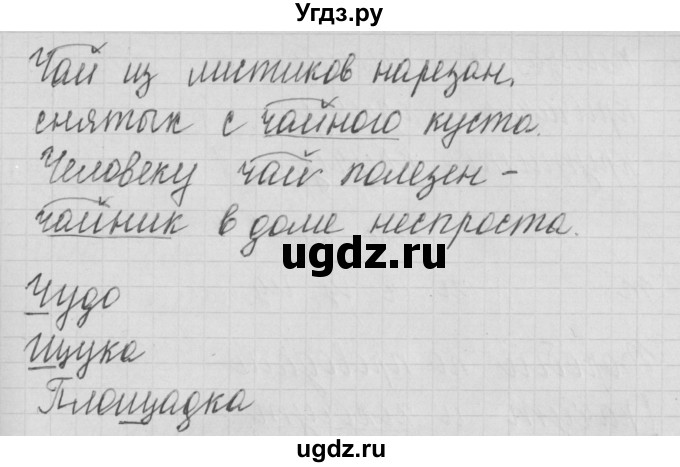 Угдз.ру
Чай из листиков нарезан,
снятых с чайного куста.
Человеку чай полезен -
чайник в доме неспроста.
ugdz.ru
Чудо
Щука
Площадка
ugdz.ru